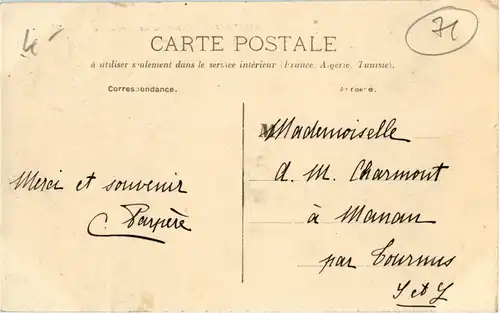 71
CARTE POSTALE
à utiliser seulement dans le service intérieur (France, Algérie, Tunisie).
Correspondance.
Adresse.
Mademoiselle
A. M. Charmont
à Manan
par Tournus
S et L
Merci et souvenir
C.